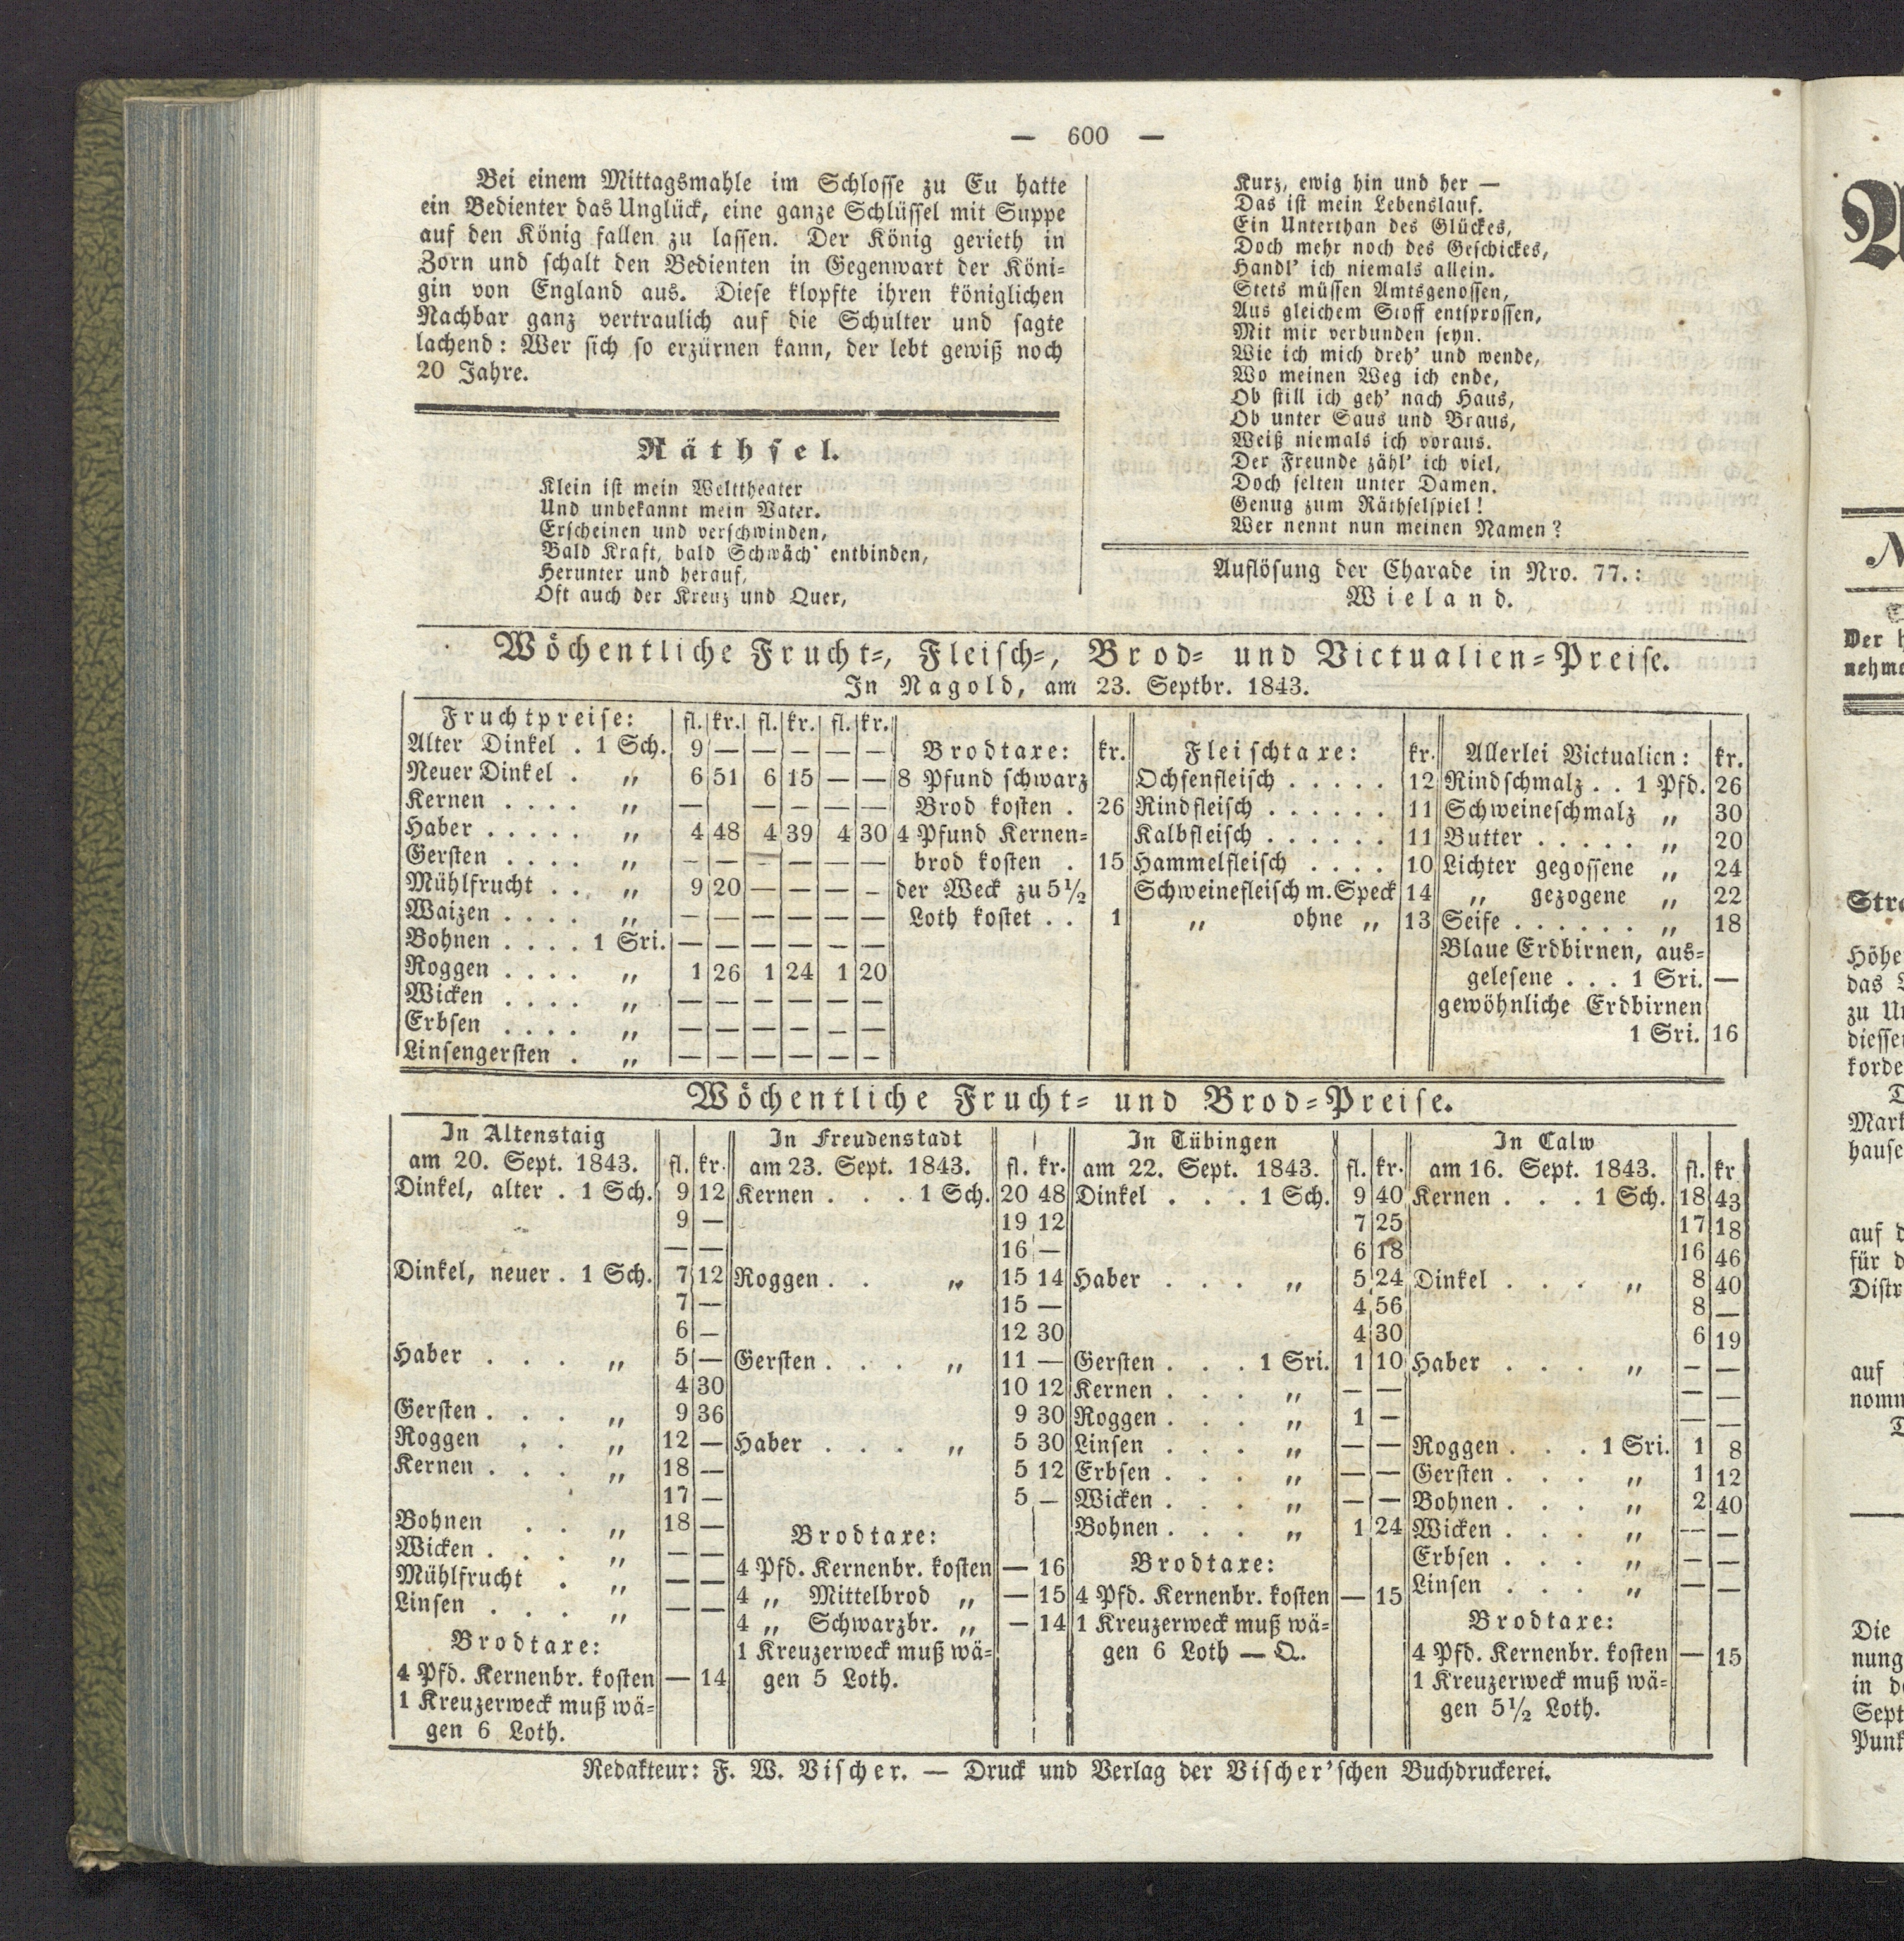 — 600 —
Bei einem Mittagsmahle im Schlosse zu Eu hatte
ein Bedienter das Unglück, eine ganze Schlüssel mit Suppe
auf den König fallen zu lassen. Der König gerieth in
Zorn und schalt den Bedienten in Gegenwart der Köni-
gin von England aus. Diese klopfte ihren königlichen
Nachbar ganz vertraulich auf die Schulter und sagte
lachend: Wer sich so erzürnen kann, der lebt gewiß noch
20 Jahre.
Räthsel.
Klein ist mein Welttheater
Und unbekannt mein Vater.
Erscheinen und verschwinden,
Bald Kraft, bald Schwäch' entbinden,
Herunter und herauf,
Oft auch der Kreuz und Quer,
Kurz, ewig hin und her —
Das ist mein Lebenslauf.
Ein Unterthan des Glückes,
Doch mehr noch des Geschickes,
Handl' ich niemals allein.
Stets müssen Amtsgenossen,
Aus gleichem Stoff entsprossen,
Mit mir verbunden seyn.
Wie ich mich dreh' und wende,
Wo meinen Weg ich ende,
Ob still ich geh' nach Haus,
Ob unter Saus und Braus,
Weiß niemals ich voraus.
Der Freunde zähl' ich viel,
Doch selten unter Damen.
Genug zum Räthselspiel!
Wer nennt nun meinen Namen?
Auflösung der Charade in Nro. 77.:
Wieland.
Wöchentliche Frucht-, Fleisch-, Brod- und Victualien-Preise.
In Nagold, am 23. Septbr. 1843.
Fruchtpreise: fl. kr. fl. kr. fl. kr.
Alter Dinkel . 1 Sch. 9 — — — — —
Neuer Dinkel . „ 6 51 6 15 — —
Kernen . . . . „ — — — — —
Haber . . . . . „ 4 48 4 39 4 30
Gersten . . . . „ — — — — — —
Mühlfrucht . . „ 9 20 — — — —
Waizen . . . . „ — — — — — —
Bohnen . . . . 1 Sri. — — — — — —
Roggen . . . . „ 1 26 1 24 1 20
Wicken . . . . „ — — — — — —
Erbsen . . . . „ — — — — — —
Linsengersten . „ — — — — — —
Brodtaxe: kr.
8 Pfund schwarz
Brod kosten . 26
4 Pfund Kernen-
brod kosten . 15
der Weck zu 5½
Loth kostet . . 1
Fleischtaxe: kr.
Ochsenfleisch . . . . . 12
Rindfleisch . . . . . . 11
Kalbfleisch . . . . . . 11
Hammelfleisch . . . . 10
Schweinefleisch m. Speck 14
„ ohne „ 13
Allerlei Victualien: kr.
Rindschmalz . . 1 Pfd. 26
Schweineschmalz „ 30
Butter . . . . . „ 20
Lichter gegossene „ 24
„ gezogene „ 22
Seife . . . . . . „ 18
Blaue Erdbirnen, aus-
gelesene . . . 1 Sri. —
gewöhnliche Erdbirnen
1 Sri. 16
Wöchentliche Frucht- und Brod-Preise.
In Altenstaig
am 20. Sept. 1843. fl. kr.
Dinkel, alter . 1 Sch. 9 12
9 —
— —
Dinkel, neuer . 1 Sch. 7 12
7 —
6 —
Haber . . . „ 5 —
4 30
Gersten . . . „ 9 36
Roggen . . „ 12 —
Kernen . . . „ 18 —
17 —
Bohnen . . „ 18 —
Wicken . . . „ — —
Mühlfrucht . „ — —
Linsen . . . „ — —
Brodtaxe:
4 Pfd. Kernenbr. kosten — 14
1 Kreuzerweck muß wä-
gen 6 Loth.
In Freudenstadt
am 23. Sept. 1843. fl. kr.
Kernen . . . 1 Sch. 20 48
19 12
16 —
Roggen . . „ 15 14
15 —
12 30
Gersten . . . „ 11 —
10 12
9 30
Haber . . . „ 5 30
5 12
5 —
Brodtaxe:
4 Pfd. Kernenbr. kosten — 16
4 „ Mittelbrod „ — 15
4 „ Schwarzbr. „ — 14
1 Kreuzerweck muß wä-
gen 5 Loth.
In Tübingen
am 22. Sept. 1843. fl. kr.
Dinkel . . . 1 Sch. 9 40
7 25
6 18
Haber . . . „ 5 24
4 56
4 30
Gersten . . . 1 Sri. 1 10
Kernen . . . „ — —
Roggen . . . „ 1 —
Linsen . . . „ — —
Erbsen . . . „ — —
Wicken . . . „ — —
Bohnen . . . „ 1 24
Brodtaxe:
4 Pfd. Kernenbr. kosten — 15
1 Kreuzerweck muß wä-
gen 6 Loth — Q.
In Calw
am 16. Sept. 1843. fl. kr
Kernen . . . 1 Sch. 18 43
17 18
16 46
Dinkel . . . „ 8 40
8 —
6 19
Haber . . . „ — —
— —
— —
Roggen . . . 1 Sri. 1 8
Gersten . . . „ 1 12
Bohnen . . . „ 2 40
Wicken . . . „ — —
Erbsen . . . „ — —
Linsen . . . „ — —
Brodtaxe:
4 Pfd. Kernenbr. kosten — 15
1 Kreuzerweck muß wä-
gen 5½ Loth.
Redakteur: F. W. Vischer. — Druck und Verlag der Vischer'schen Buchdruckerei.
Der
nehm
Stra
Höhe
das
zu
diesse
korde
Mark
hause
auf
für
Distr
auf
nomm
Die
nung
in
Sept
Punk